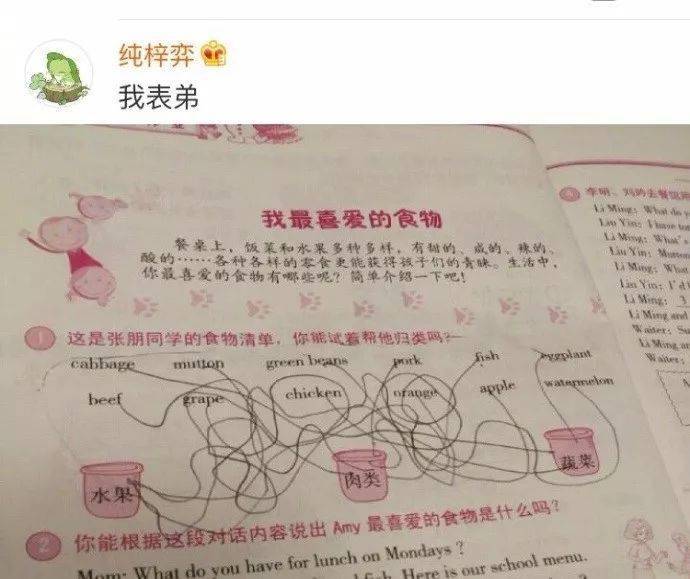 纯梓弈
我表弟
我最喜爱的食物
餐桌上，饭菜和水果多种多样，有甜的、咸的、辣的、
酸的……各种各样的零食更能获得孩子们的青睐。生活中，
你最喜爱的食物有哪些呢？简单介绍一下吧！
1 这是张朋同学的食物清单，你能试着帮他归类吗？
cabbage mutton green beans pork fish eggplant
beef grape chicken orange apple watermelon
水果 肉类 蔬菜
2 你能根据这段对话内容说出 Amy 最喜爱的食物是什么吗？
Mom: What do you have for lunch on Mondays ?
fish. Here is our school menu.
4 李明、刘吟去餐馆
Li Ming: What do
Liu Yin: I have
Li Ming: What's
Liu Yin: Mutton
Li Ming: What
Liu Yin: I'd
Li Ming: 3
Li Ming and
Waiter:
Li Ming
Waiter: